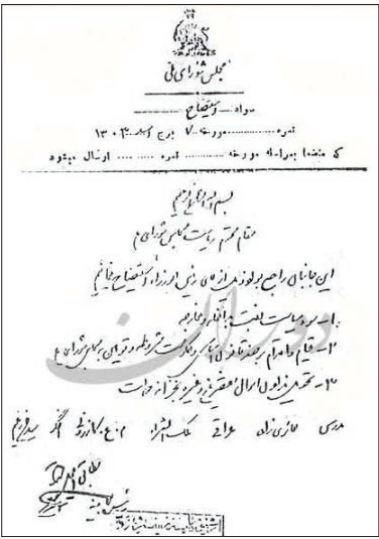 مجلس شورای ملی
سواد استیضاح
نمره مورخه ۷ برج اسد ۱۳۰۳
که منضما بمراسله مورخه نمره ارسال میشود
بسم الله الرحمن الرحیم
مقام محترم ریاست مجلس شورای ملی
این جانبان راجع بمواد ذیل از آقای رئیس الوزراء استیضاح مینمائیم
۱- سوء سیاست نسبت بداخله و خارجه
۲- قیام و اقدام بر ضد قانون اساسی و حکومت مشروطه و توهین به مجلس شورای ملی
۳- تحویل ندادن اموال مقصرین و غیره بخزانه دولت
مدرس حائری زاده عراقی ملک الشعراء کازرونی اخگر سید
دوران
رئیس کابینه